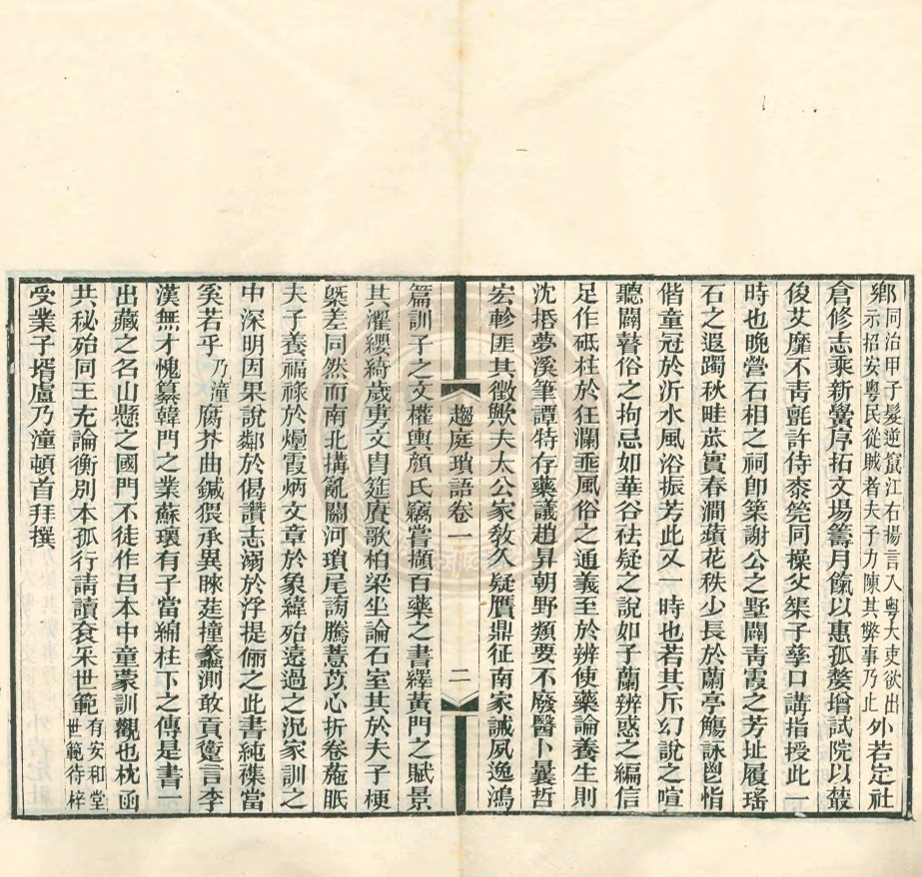 鄕同治甲子髮逆竄江右揚言入粵大吏欲出示招安粵民從賊者夫子力陳其弊事乃止外若定社
倉修志乘新黌序拓文場籌月餼以惠孤嫠增試院以㩳
俊艾靡不靑氈許侍桼筦同操㕛榘子孳口講指授此一
時也晚營石相之祠卽築謝公之墅闢靑霞之芳址履瑤
石之遐躅秋畦菘實春澗蘋花秩少長於蘭亭觴詠鬯惰
偕童冠於沂水風浴振芳此又一時也若其斥幻說之喧
聽闢瞽俗之拘忌如華谷祛疑之說如子蘭辨惑之編信
足作砥柱於狂瀾乖風俗之通義至於辨使藥論養生則
沈捪夢溪筆譚特存藥議趙昇朝野類要不廢醫卜曩哲
宏軫匪其徵歟夫太公家敎久疑贋鼎征南家誡夙逸鴻
趨庭瑣語卷一
二
篇訓子之文權輿顏氏竊嘗擷百藥之書繹黃門之賦景
其濯纓綺歲専文胄筵賡歌柏梁坐論石室其於夫子梗
槩差同然而南北搆亂關河瑣尾謗騰薏苡心折卷葹眂
夫子養福祿於煙霞炳文章於象緯殆遠過之況家訓之
中深明因果說鄰於偈讚志溺於浮提儷之此書純襍當
奚若乎乃潼腐芥曲鍼猥承異睞莛撞蠡測敢貢躗言李
漢無才愧纂韓門之業蘇瓌有子當綿柱下之傳是書一
出藏之名山懸之國門不徒作呂本中童蒙訓觀也枕函
共秘殆同王充論衡別本孤行請讀袁采世範有安和堂世範待梓
受業子壻盧乃潼頓首拜撰